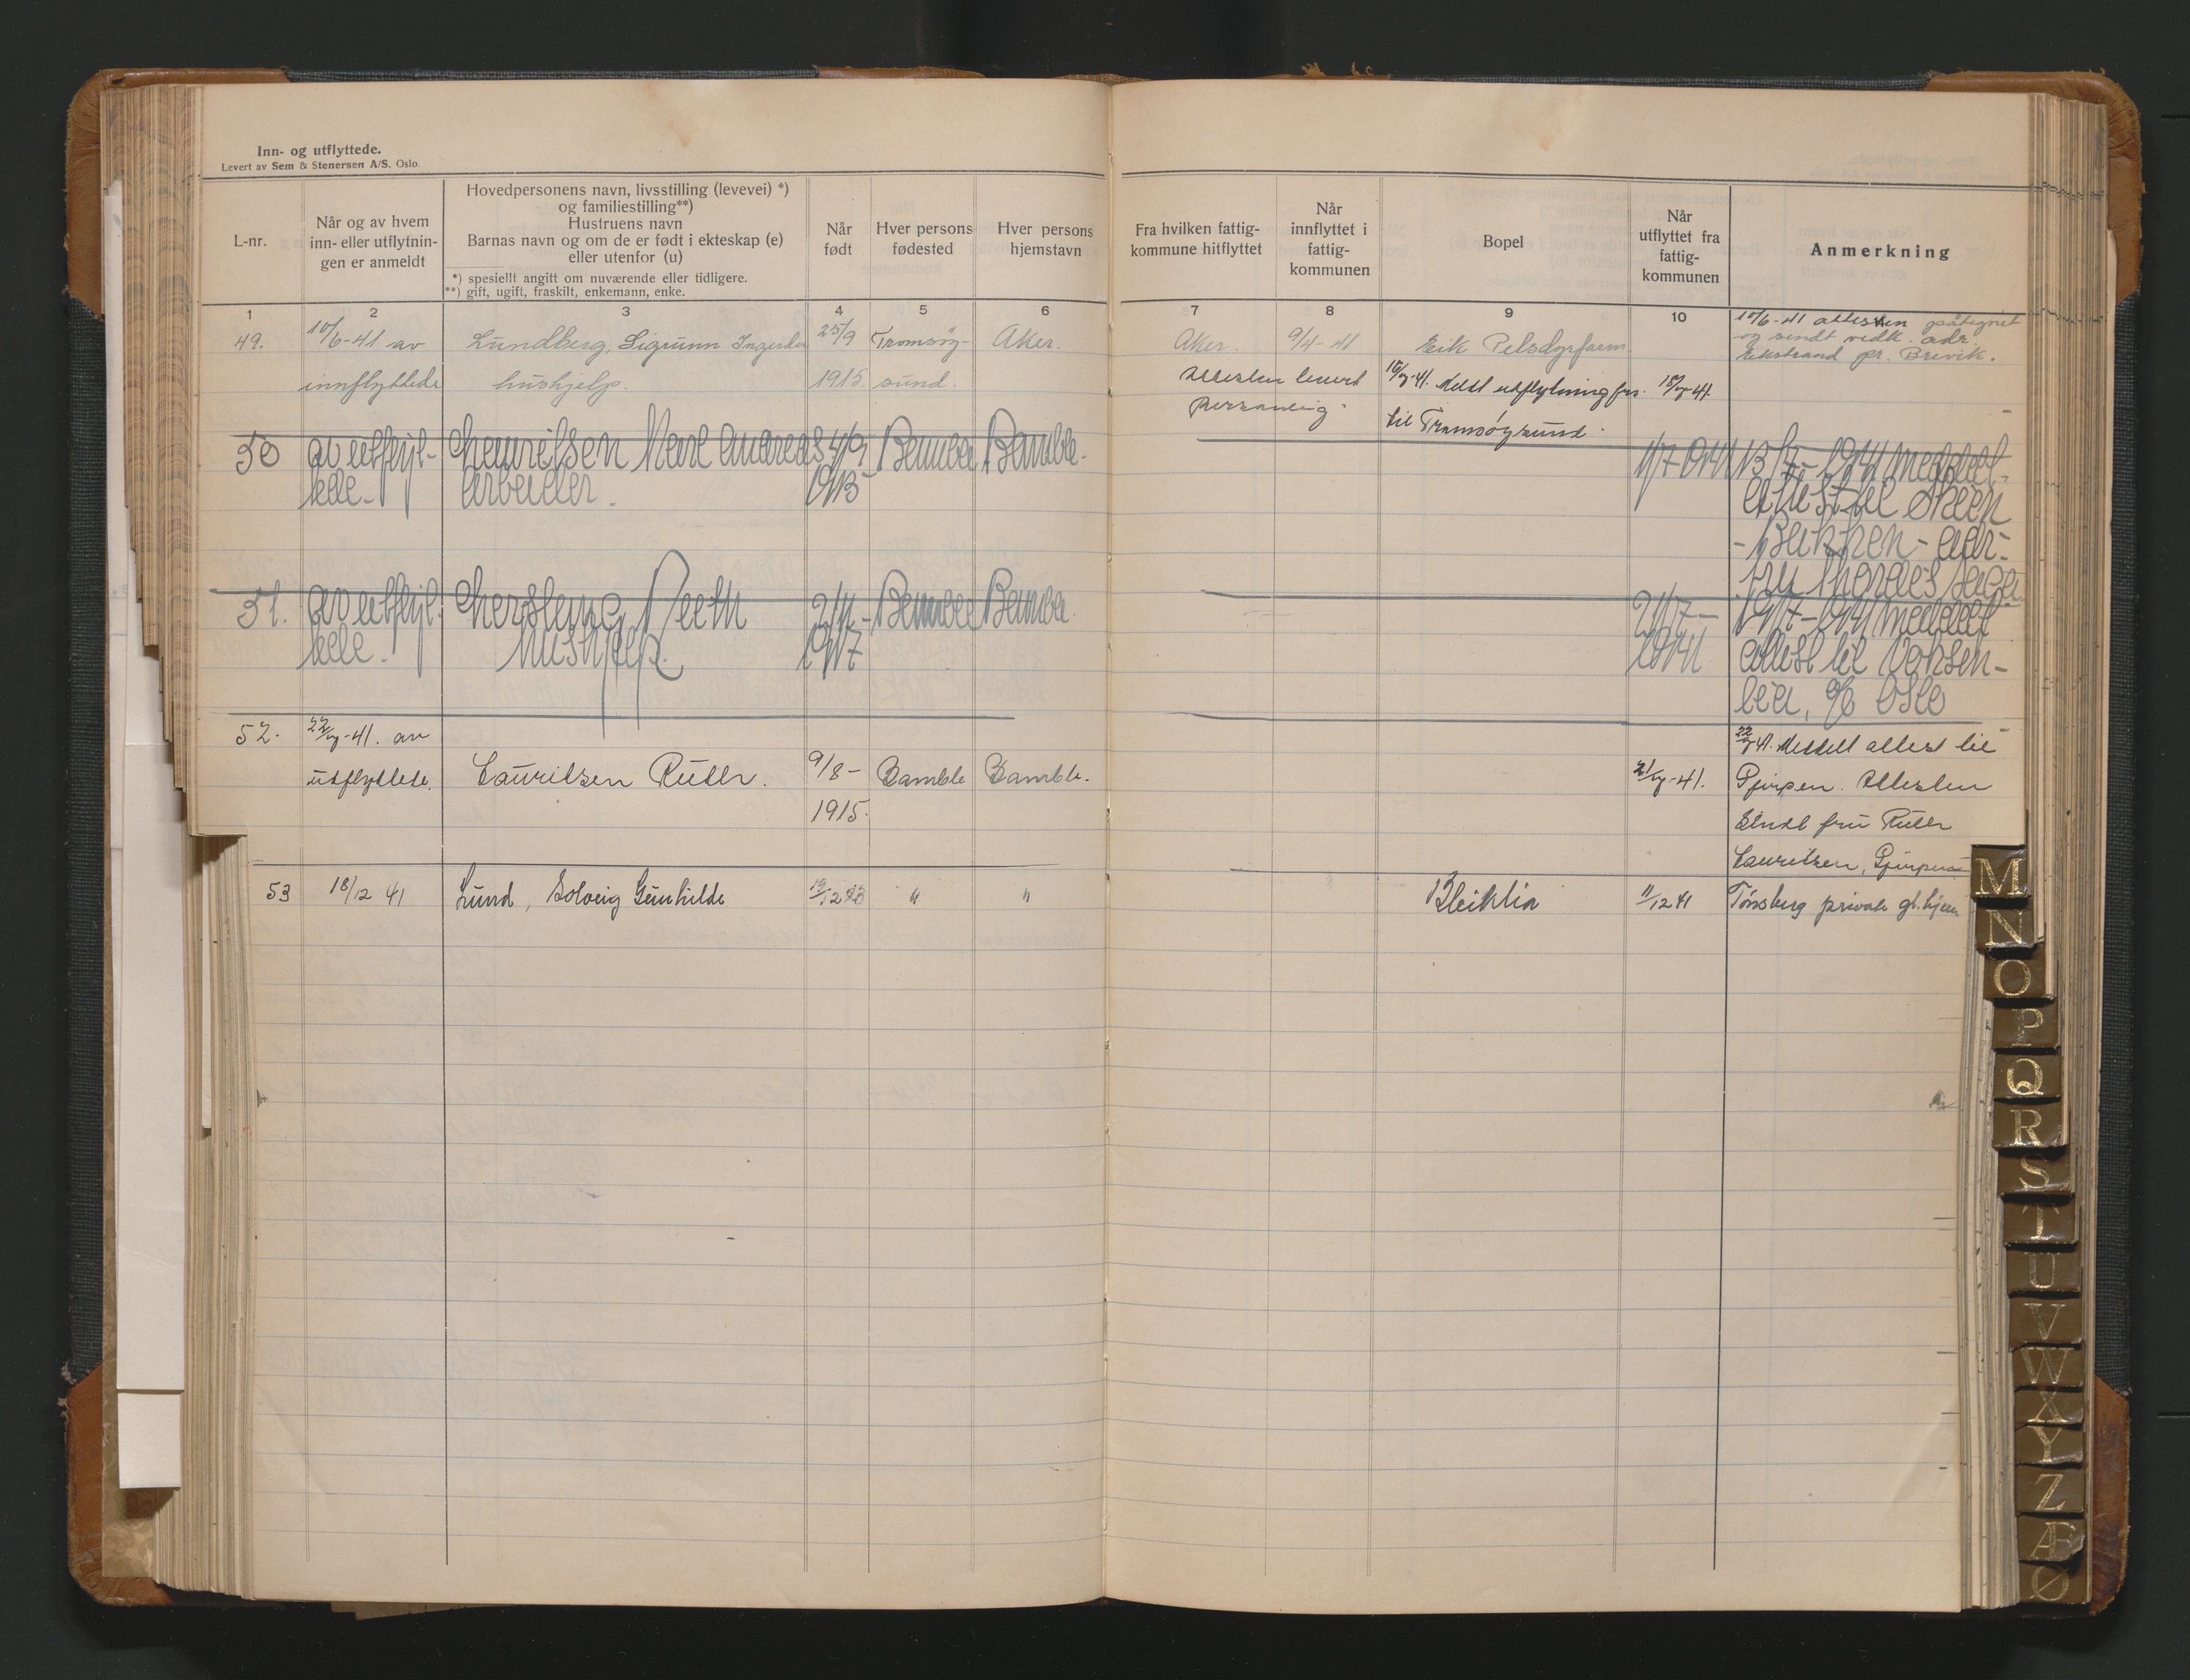 Inn- og utflyttede.
Levert av Sem & Stenersen A/S. Oslo.
L-nr.
Når og av hvem
inn- eller utflytnin-
gen er anmeldt
Hovedpersonens navn, livsstilling (levevei) *)
og familiestilling**)
Hustruens navn
Barnas navn og om de er født i ekteskap (e)
eller utenfor (u)
*) spesielt angitt om nuværende eller tidligere.
**) gift, ugift, fraskilt, enkemann, enke.
Når
født
Hver persons
fødested
Hver persons
hjemstavn
Fra hvilken fattig-
kommune hitflyttet
Når
innflyttet i
fattig-
kommunen
Bopel
Når
utflyttet fra
fattig-
kommunen
Anmerkning
1 2 3 4 5 6 7 8 9 10
49. 10/6-41 av Lundberg, Sigrunn 25/9 Tromsøy- Aker. Aker. 9/4-41 Eik Pelsdyrfarm 10/6-41 attesten påtegnet
og sendt vedk. adr.
Ekstrand pr. Brevik.
innflyttede hushjelp. 1915. sund. Attesten levert
personlig
15/7-41. Meldt utflytning fra 15/7-41.
til Tromsøysund.
50 av utflyt- Lauritsen Karl Andreas 4/9 Bamble Bamble. 1/7-1941 13/7-1941 meddelt
tede- arbeider. 1913 attest til Skien
-Bakken- adr.
fru
51. av utflyt- Ruth 2/11- Bamble Bamble. 21/7- 19/7-1941 meddelt
tede. hushjelp. 1917 1941 attest til Voksen-
lia, Oslo
52. 22/7-41. av 22/7-41. Meddelt attest til
utflyttede. Lauritsen Ruth. 9/8- Bamble Bamble. 21/7-41. Gjerpen. Attesten
1915. sendt fru Ruth
Lauritsen, Gjerpen
53 18/12 41 Lund, Solveig Gunhilde 19/12 " " Bleiklia 11/12 41 Tønsberg private gl.hjem
M
N
O
P
Q
R
S
T
U
V
W
X
Y
Z
Æ
Ø